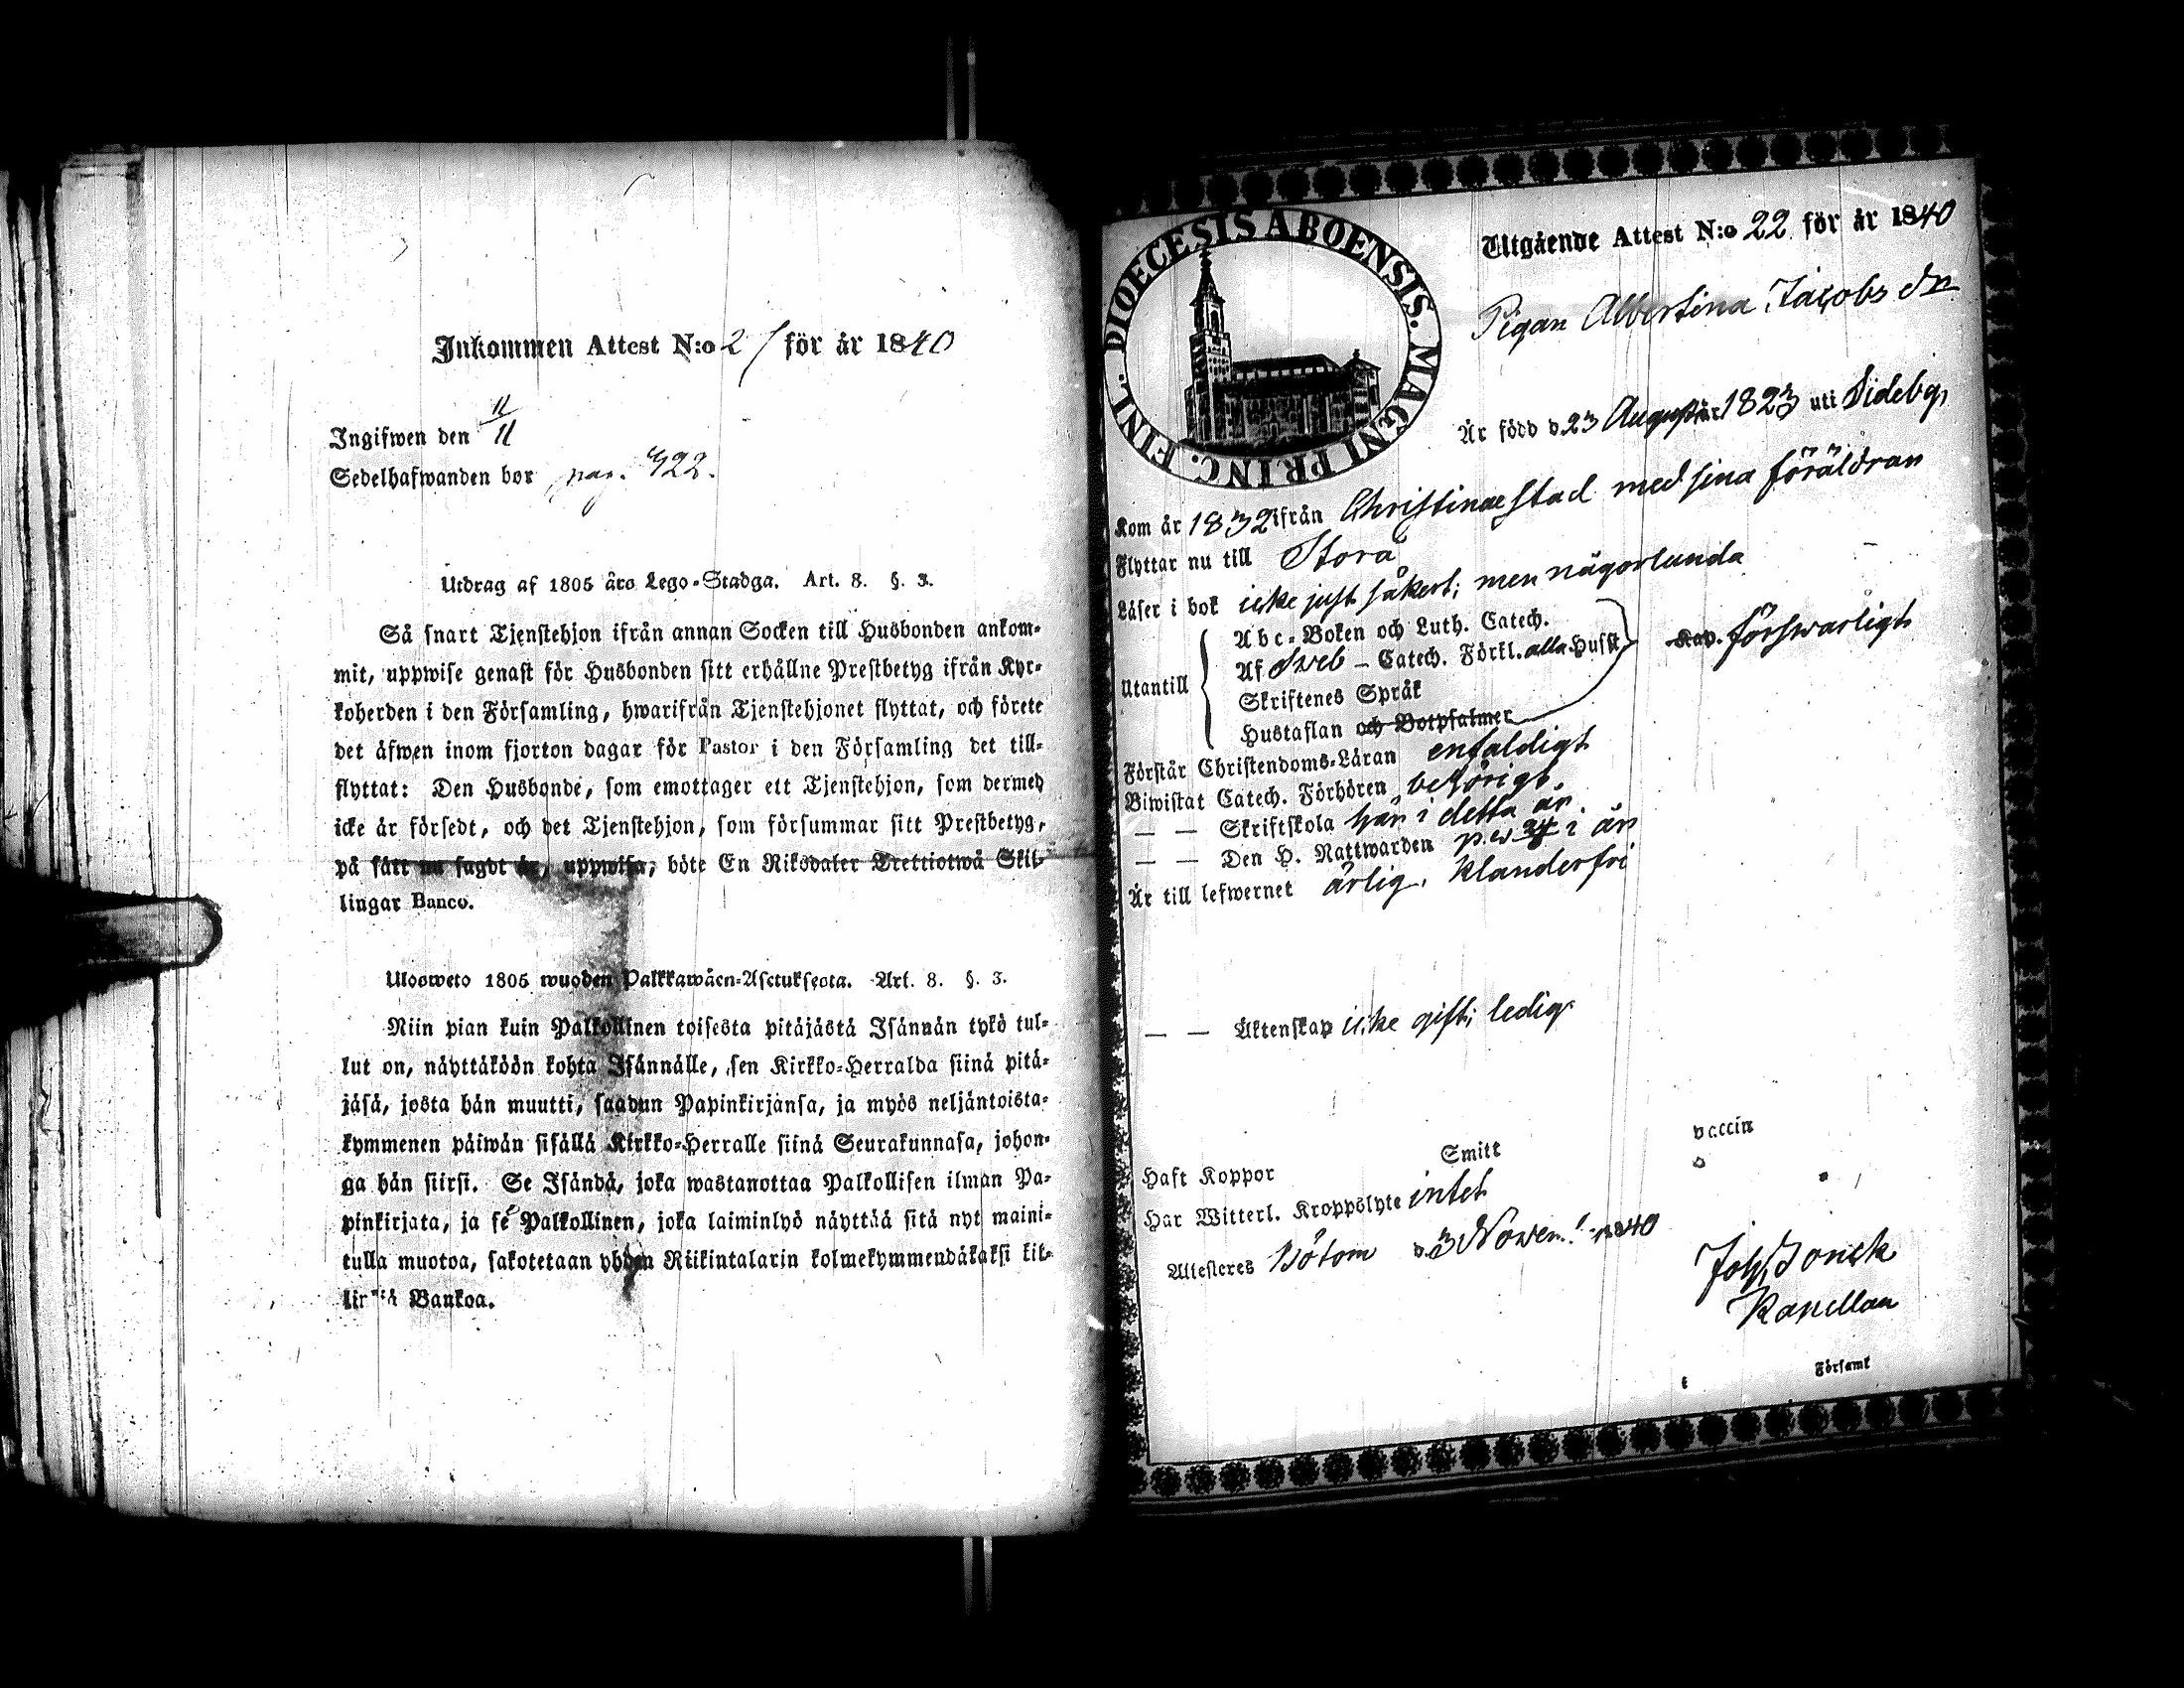 Inkommen Attest N:o 21 för år 1840
Ingifwen den 11/11
Sedelhafwanden bor pag. 422.
Utdrag af 1805 års Lego-Stadga. Art. 8. §. 3.
Så snart Tjenstehjon ifrån annan Socken till Husbonden ankom-
mit, uppwise genast för Husbonden sitt erhållne Prestbetyg ifrån Kyr-
koherden i den Församling, hwarifrån Tjenstehjonet flyttat, och förete
det äfwen inom fjorton dagar för Pastor i den Församling det till-
flyttat: Den Husbonde, som emottager ett Tjenstehjon, som dermed
icke är försedt, och det Tjenstehjon, som försummar sitt Prestbetyg,
på sätt nu sagdt är, uppwisa, böte En Riksdaler Trettiotwå Skil-
lingar Banco.
Ulosweto 1805 wuoden Palkkawäen-Asetuksesta. Art. 8. §. 3.
Niin pian kuin Palkollinen toisesta pitäjästä Isännän tykö tul-
lut on, näyttäköön kohta Isännälle, sen Kirkko-Herralda siinä pitä-
jäsä, josta hän muutti, saadun Papinkirjansa, ja myös neljäntoista-
kymmenen päiwän sisällä Kirkko-Herralle siinä Seurakunnasa, johon-
ga hän siirsi. Se Isändä, joka wastanottaa Palkollisen ilman Pa-
pinkirjata, ja se Palkollinen, joka laiminlyö näyttää sitä nyt maini-
tulla muotoa, sakotetaan yhden Riikintalarin kolmekymmendäkaksi kil-
lingiä Bankoa.
DIOECESIS ABOENSIS. MAGNI PRINC. FINL.
Utgående Attest N:o 22 för år 1840
Pigan Albertina Jacobs dr
Är född d. 23 August år 1823 uti Sideby,
Kom år 1832 ifrån Christinæstad med sina föräldrar
Flyttar nu till Storå
Läser i bok icke just säkert; men någorlunda
Utantill
Abc-Boken och Luth. Catech.
Af Sveb – Catech. Förkl. alla Husst
Kap. förswarligt
Skriftenes Språk
Hustaflan och Botpsalmer
Förstår Christendoms-Läran enfaldigt
Biwistat Catech. Förhören behörigt.
— — Skriftskola här i detta år.
— — Den H. Nattwarden i år
Är till lefwernet ärlig, klanderfri
— — Äktenskap icke gift; ledig
Haft Koppor Smitt vaccin
Har Witterl. Kroppslyte intet
Attesteres Bötom d. 3 Novem. 1840
Kapellan
Församl